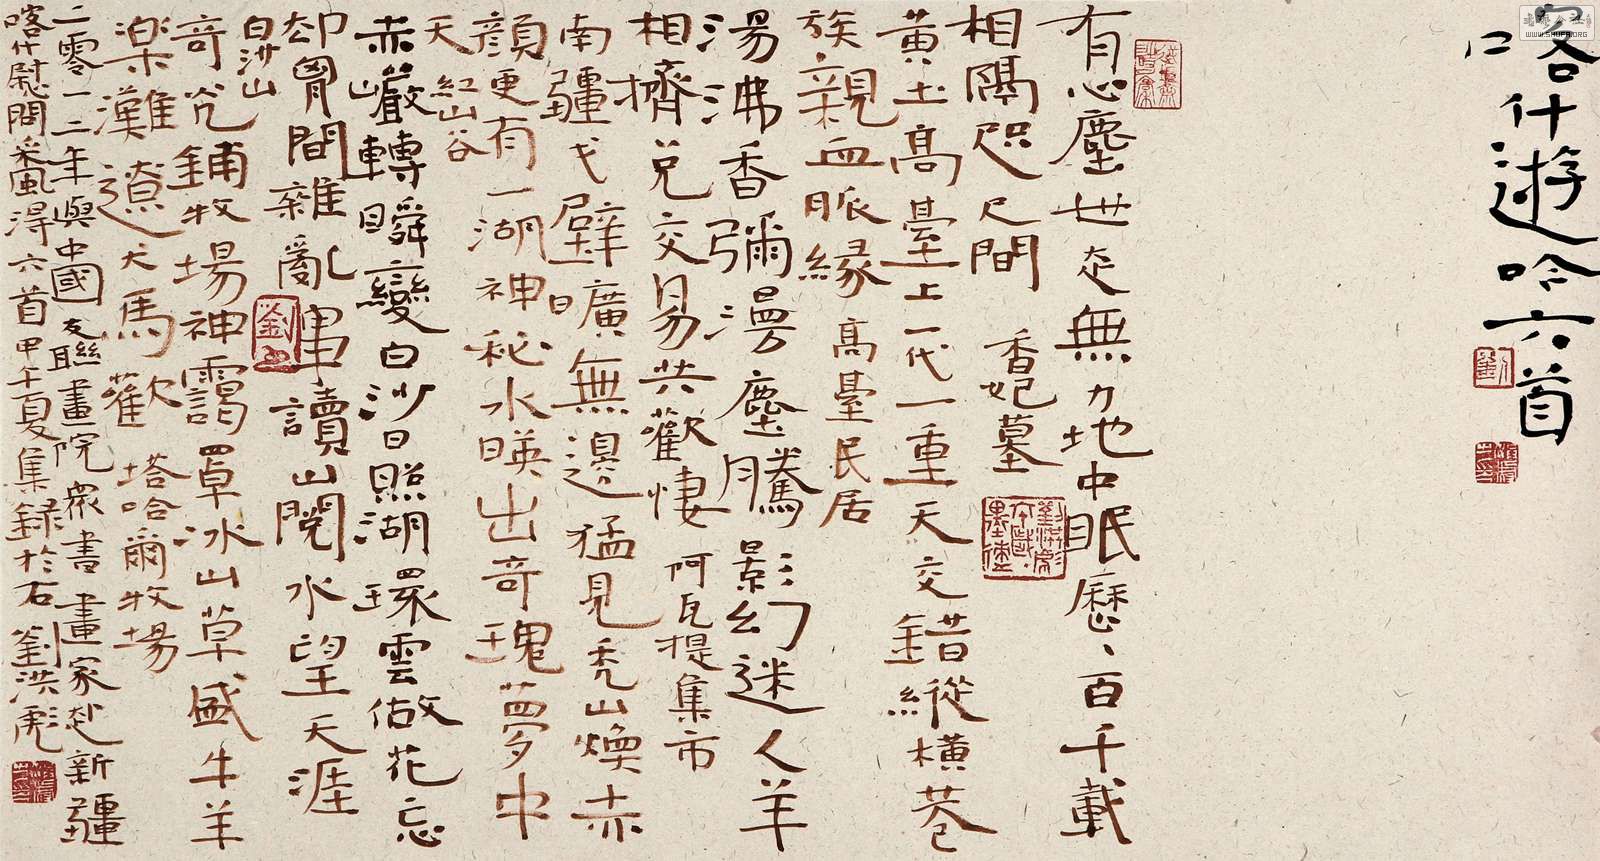 喀什遊吟六首
有心塵世走無力地中眠歷、百千載
相隔咫尺間 香妃墓
黃土高臺上一代一重天交錯縱橫巷
族親血脈緣 高臺民居
湯沸香彌漫塵騰影幻迷人羊
相擠兌交易共歡悽 阿瓦提集市
南疆戈壁曠無邊猛見禿山煥赤
顏更有一湖神秘水暎出奇瑰夢中
天 紅山谷
赤巖轉瞬變白沙日照湖環雲做花忘
却胷間雜亂事讀山閱水望天涯
白沙山
奇光鋪牧場神靄罩冰山草盛牛羊
楽灘遼犬馬歡 塔哈爾牧場
二零一二年與中國友聯畫院眾書畫家赴新疆
喀什慰問采風得六首甲午夏集録於石劉洪彪
WWW.SHUFA.ORG